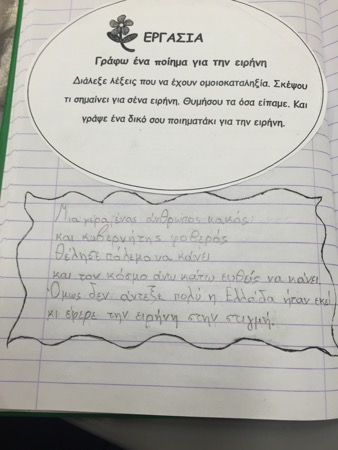 ΕΡΓΑΣΙΑ
Γράφω ένα ποίημα για την ειρήνη
Διάλεξε λέξεις που να έχουν ομοιοκαταληξία. Σκέψου
τι σημαίνει για σένα ειρήνη. Θυμήσου τα όσα είπαμε. Και
γράψε ένα δικό σου ποιηματάκι για την ειρήνη.
Μια μέρα ένας άνθρωπος κακός
και κυβερνήτης φοβερός
θέλησε πόλεμο να κάνει
και τον κόσμο άνω κάτω ευθείς να κάνει.
Όμως δεν άντεξε πολύ η Ελλάδα ήταν εκεί
κι έφερε την ειρήνη στην στιγμή.